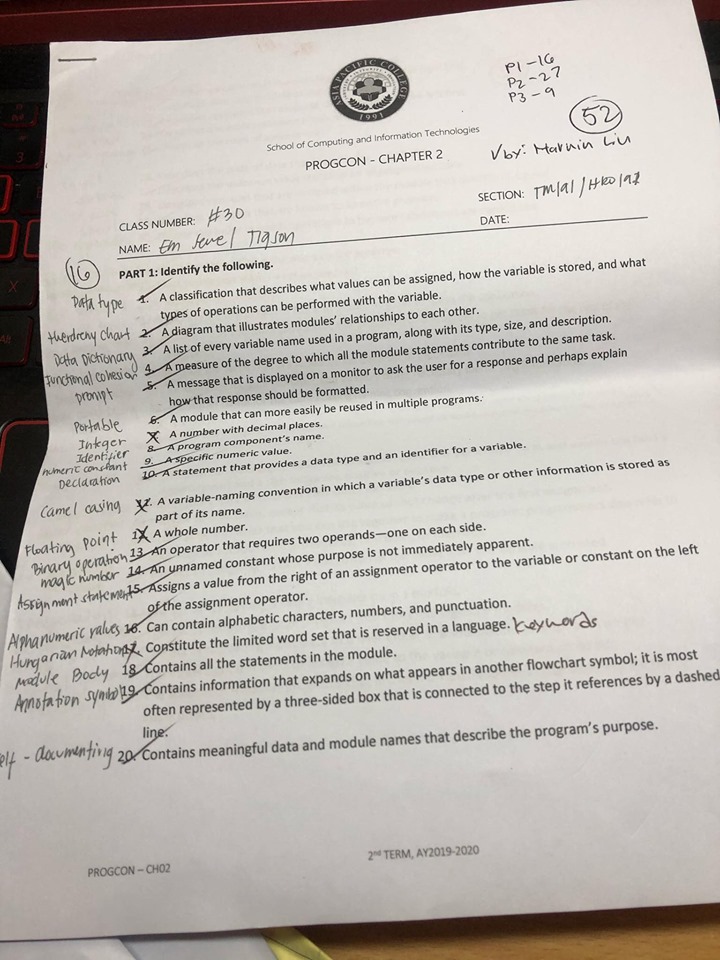 P1-16
P2-27
P3-9
52
ASIA PACIFIC COLLEGE
1991
School of Computing and Information Technologies
PROGCON - CHAPTER 2
V by: Marvin Liu
CLASS NUMBER: #30
SECTION:
NAME: Em Jewel Tigson
DATE:
16
PART 1: Identify the following.
Data type 1. A classification that describes what values can be assigned, how the variable is stored, and what
types of operations can be performed with the variable.
chart 2. A diagram that illustrates modules' relationships to each other.
Data Dictionary 3. A list of every variable name used in a program, along with its type, size, and description.
Functional cohesion 4. A measure of the degree to which all the module statements contribute to the same task.
prompt 5. A message that is displayed on a monitor to ask the user for a response and perhaps explain
how that response should be formatted.
Portable 6. A module that can more easily be reused in multiple programs.
Integer A number with decimal places.
Identifier 8. A program component's name.
numeric constant 9. A specific numeric value.
Declaration 10. A statement that provides a data type and an identifier for a variable.
Camel casing 11. A variable-naming convention in which a variable's data type or other information is stored as
part of its name.
Floating point 12. A whole number.
Binary operation 13. An operator that requires two operands—one on each side.
magic number 14. An unnamed constant whose purpose is not immediately apparent.
Assignment statement 15. Assigns a value from the right of an assignment operator to the variable or constant on the left
of the assignment operator.
Alphanumeric values 16. Can contain alphabetic characters, numbers, and punctuation.
Hungarian Notation 17. Constitute the limited word set that is reserved in a language. keywords
Module Body 18. Contains all the statements in the module.
Annotation symbol 19. Contains information that expands on what appears in another flowchart symbol; it is most
often represented by a three-sided box that is connected to the step it references by a dashed
line.
elf - documenting 20. Contains meaningful data and module names that describe the program's purpose.
PROGCON – CH02
2nd TERM, AY2019-2020